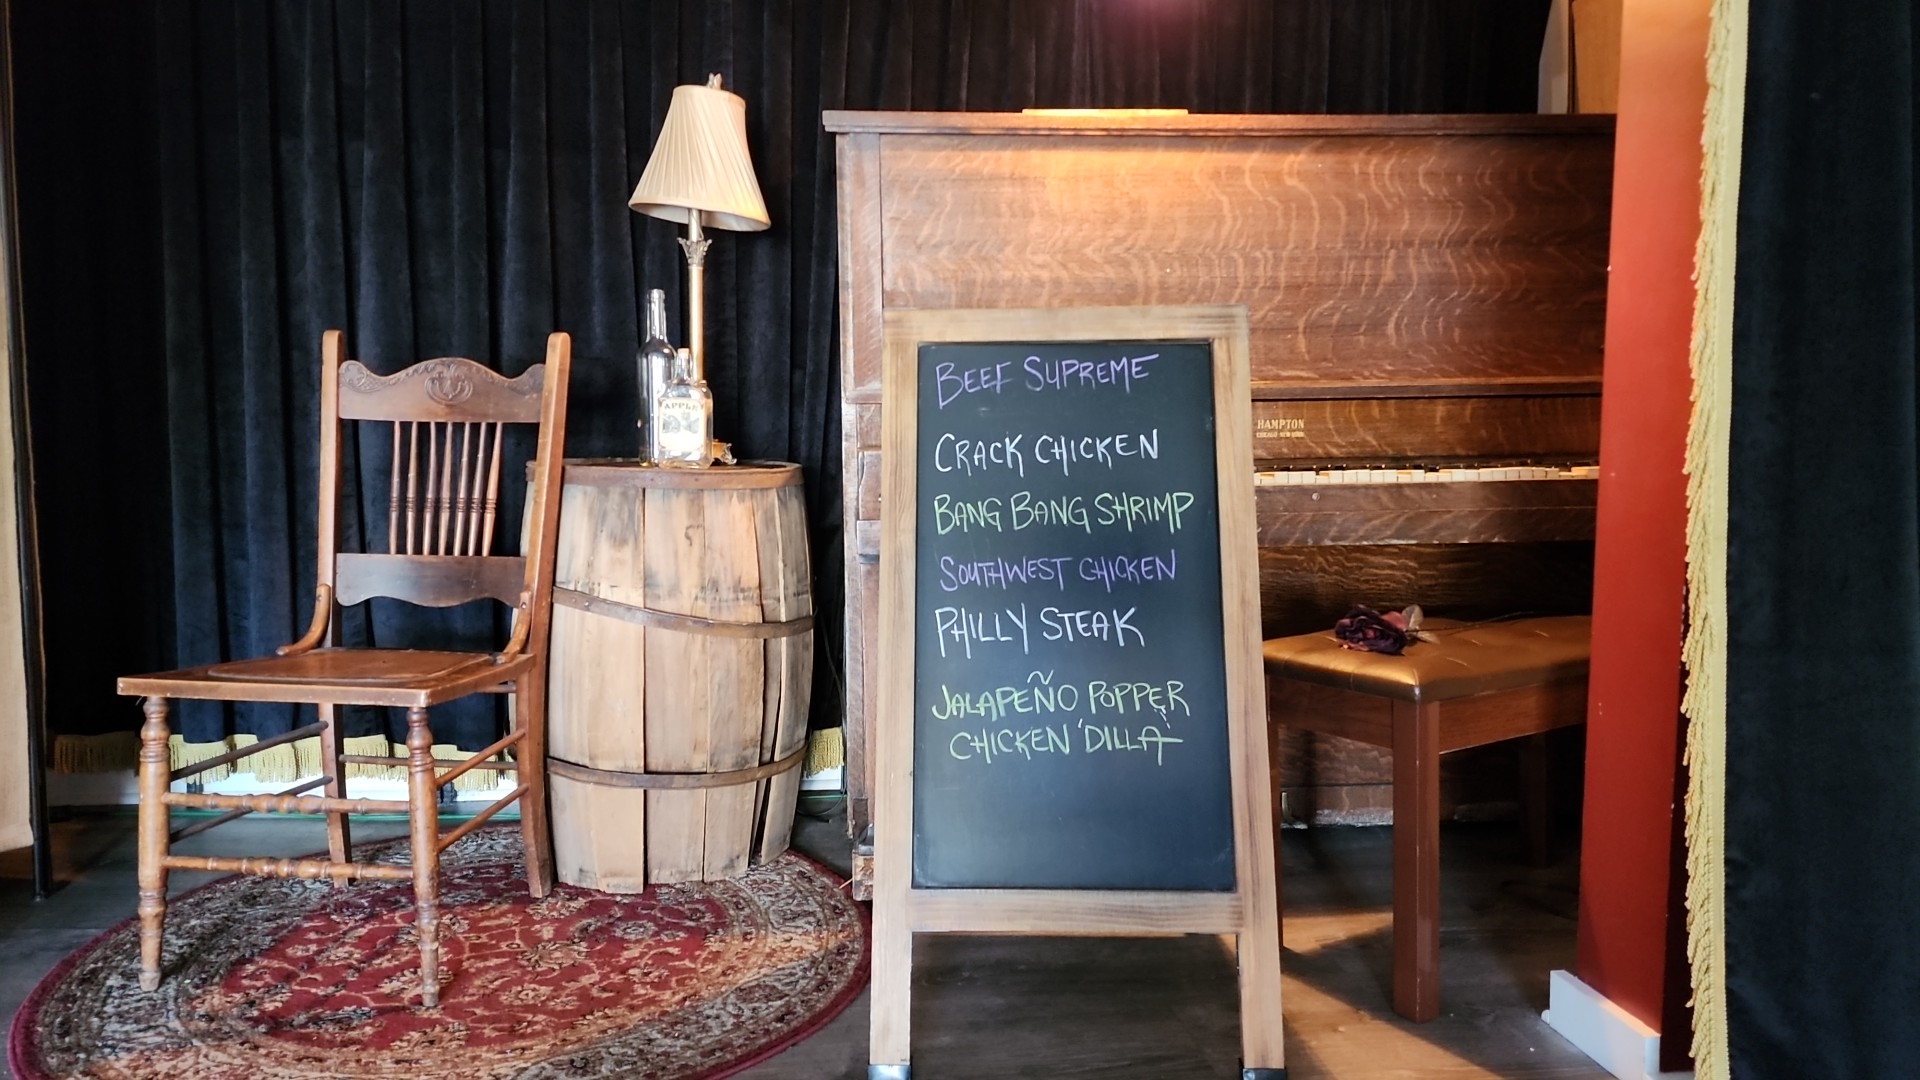 BEEF SUPREME
CRACK CHICKEN
BANG BANG SHRIMP
SOUTHWEST CHICKEN
PHILLY STEAK
JALAPEÑO POPPER
CHICKEN 'DILLA'
APPLE
HAMPTON